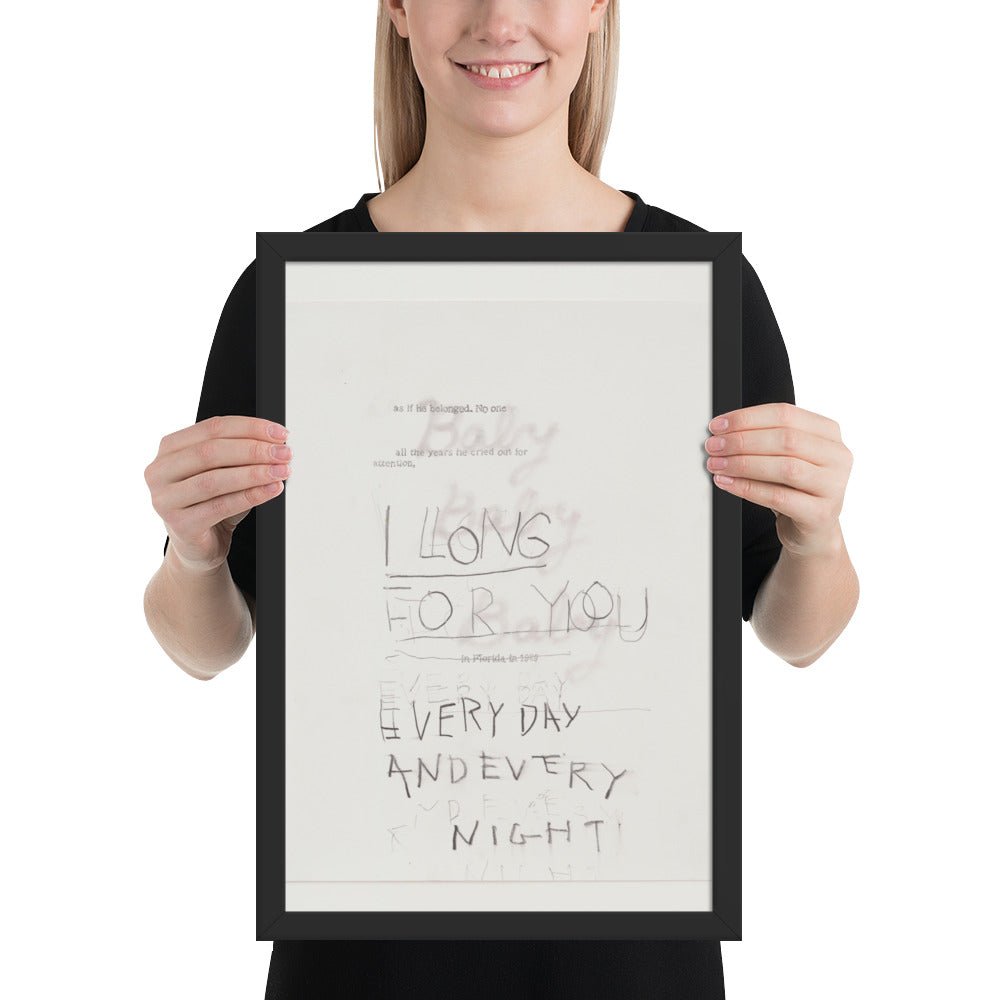 as if he belonged. No one
Baby
all the years he cried out for
attention,
Baby
I LONG
FOR YOU
Baby
in Florida in 1969
EVERY DAY
EVERY DAY
AND EVERY
ND EVERY
NIGHT
NIGHT